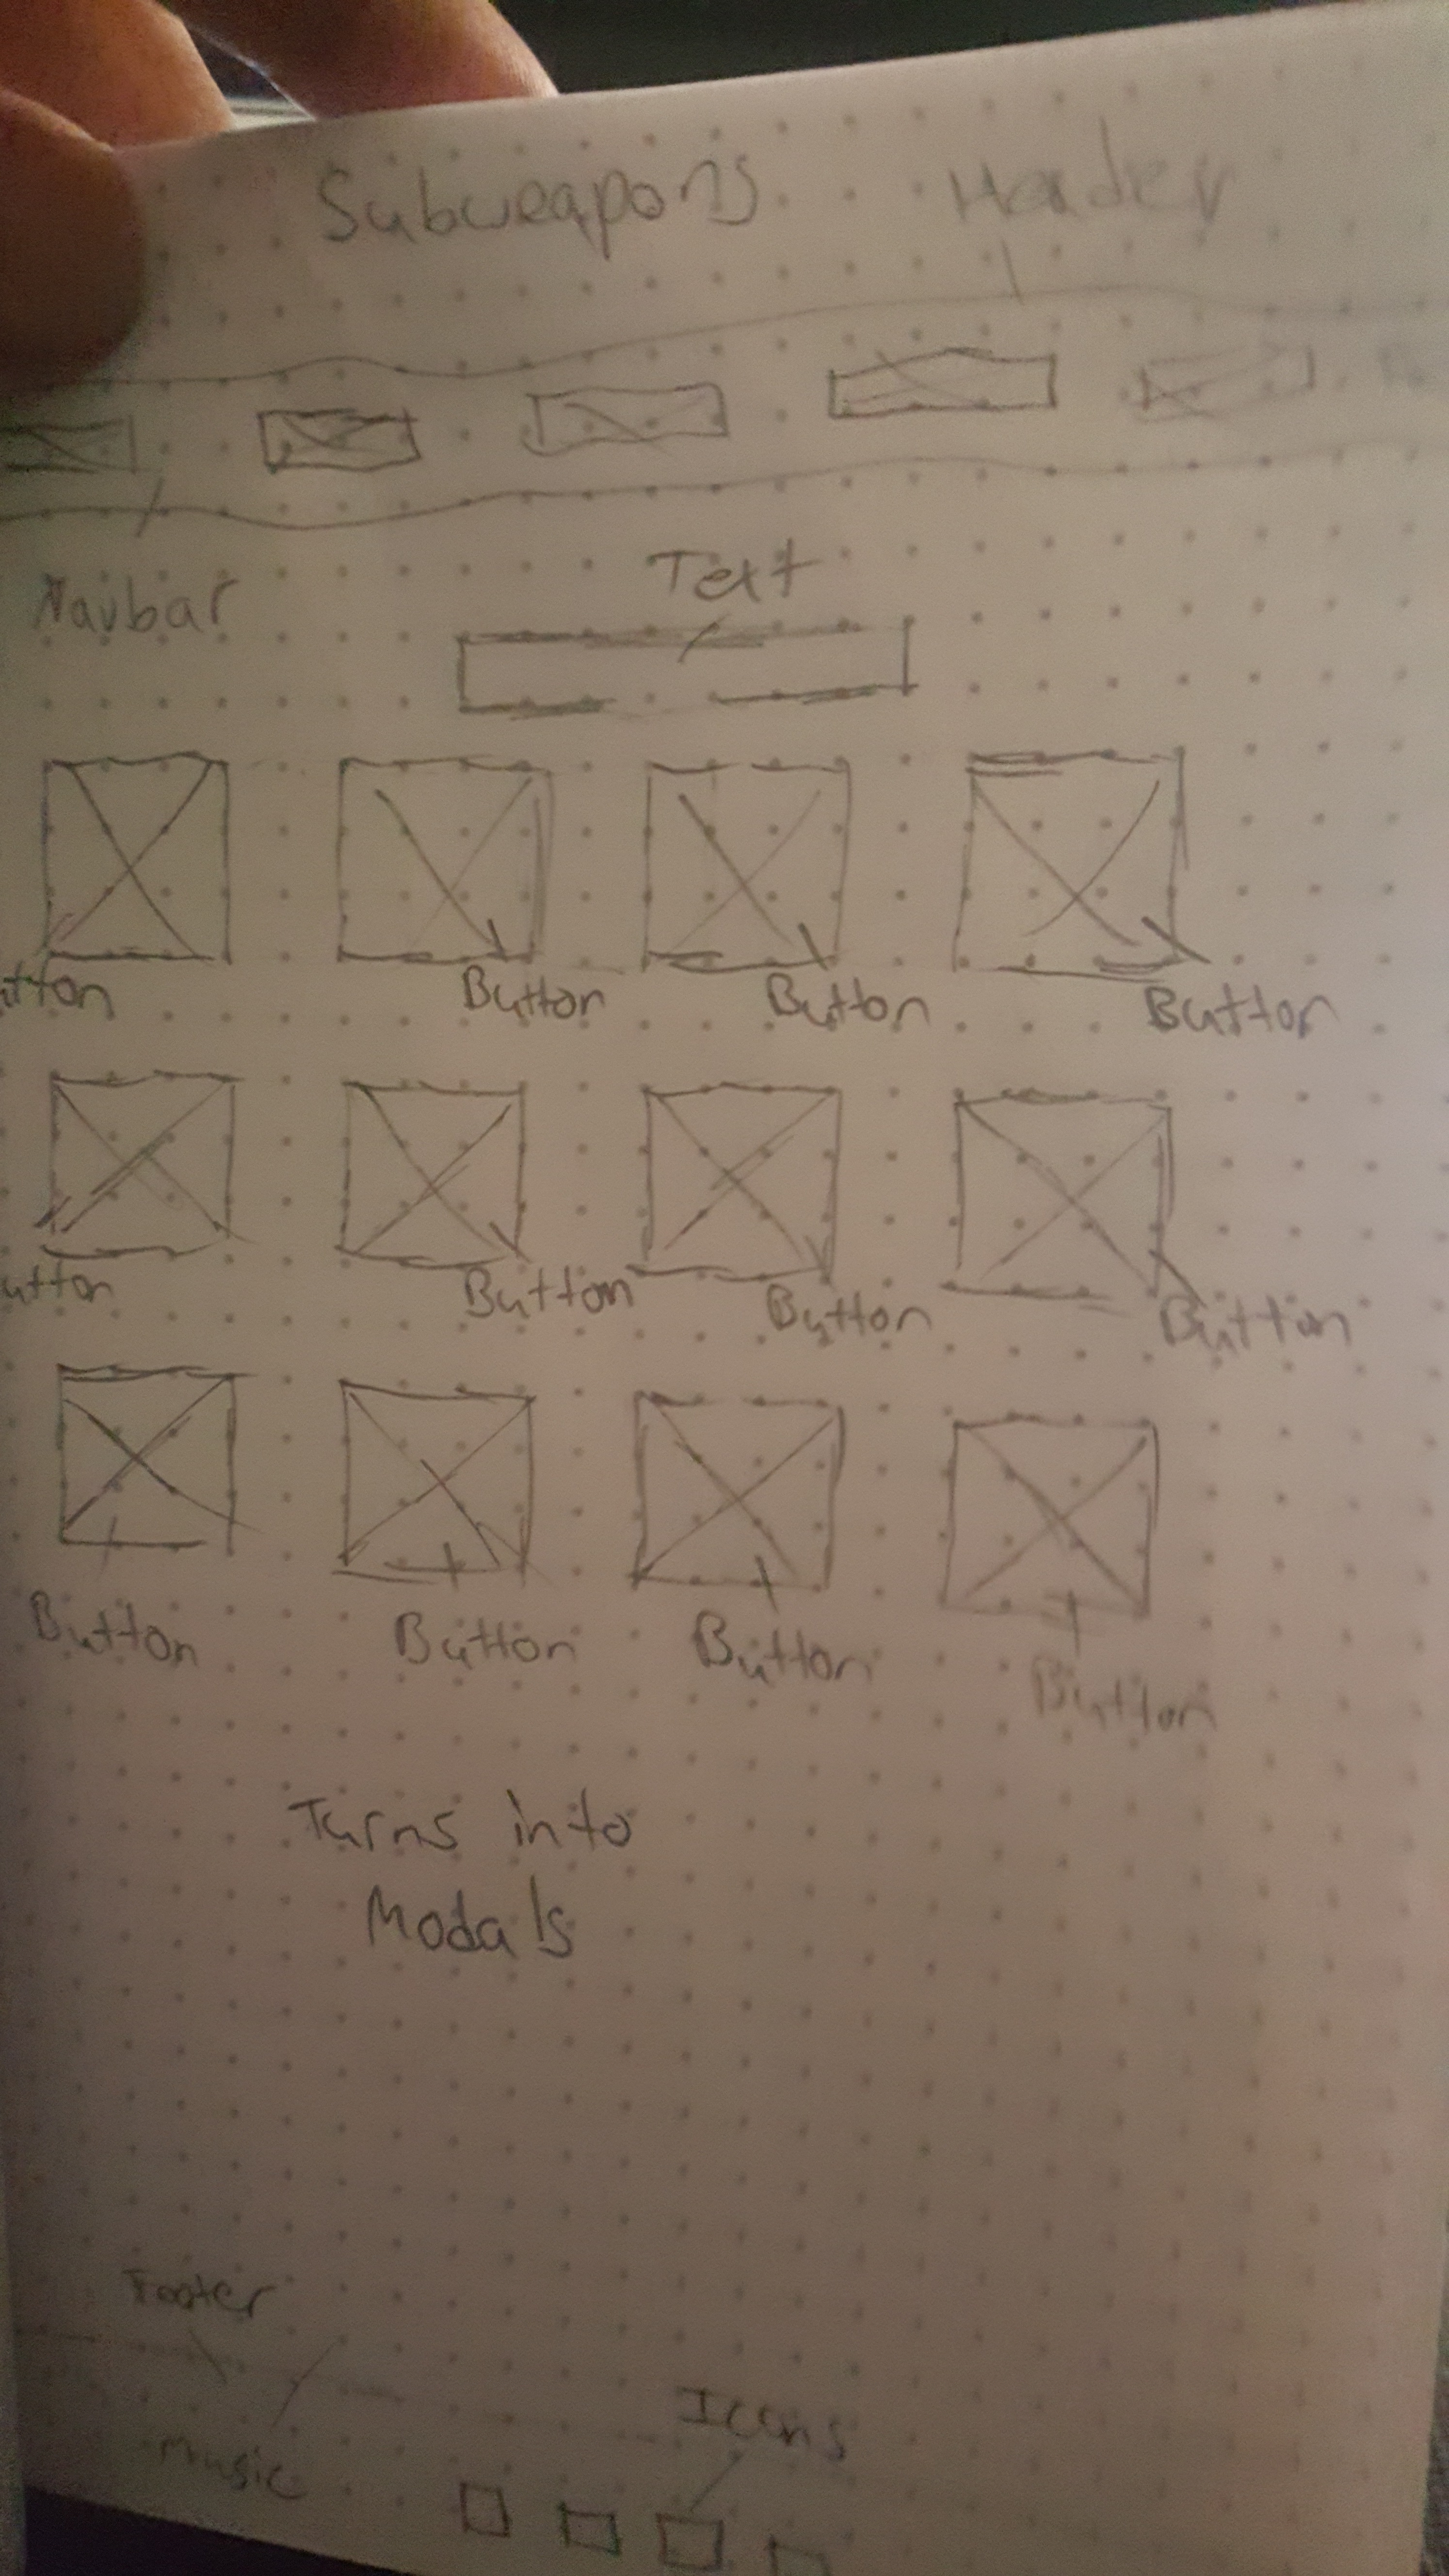 Subweapons Header
Navbar
Text
utton Button Button Button
utton Button Button Button
Button Button Button Button
Turns into
Modals
Footer
Icons
Music